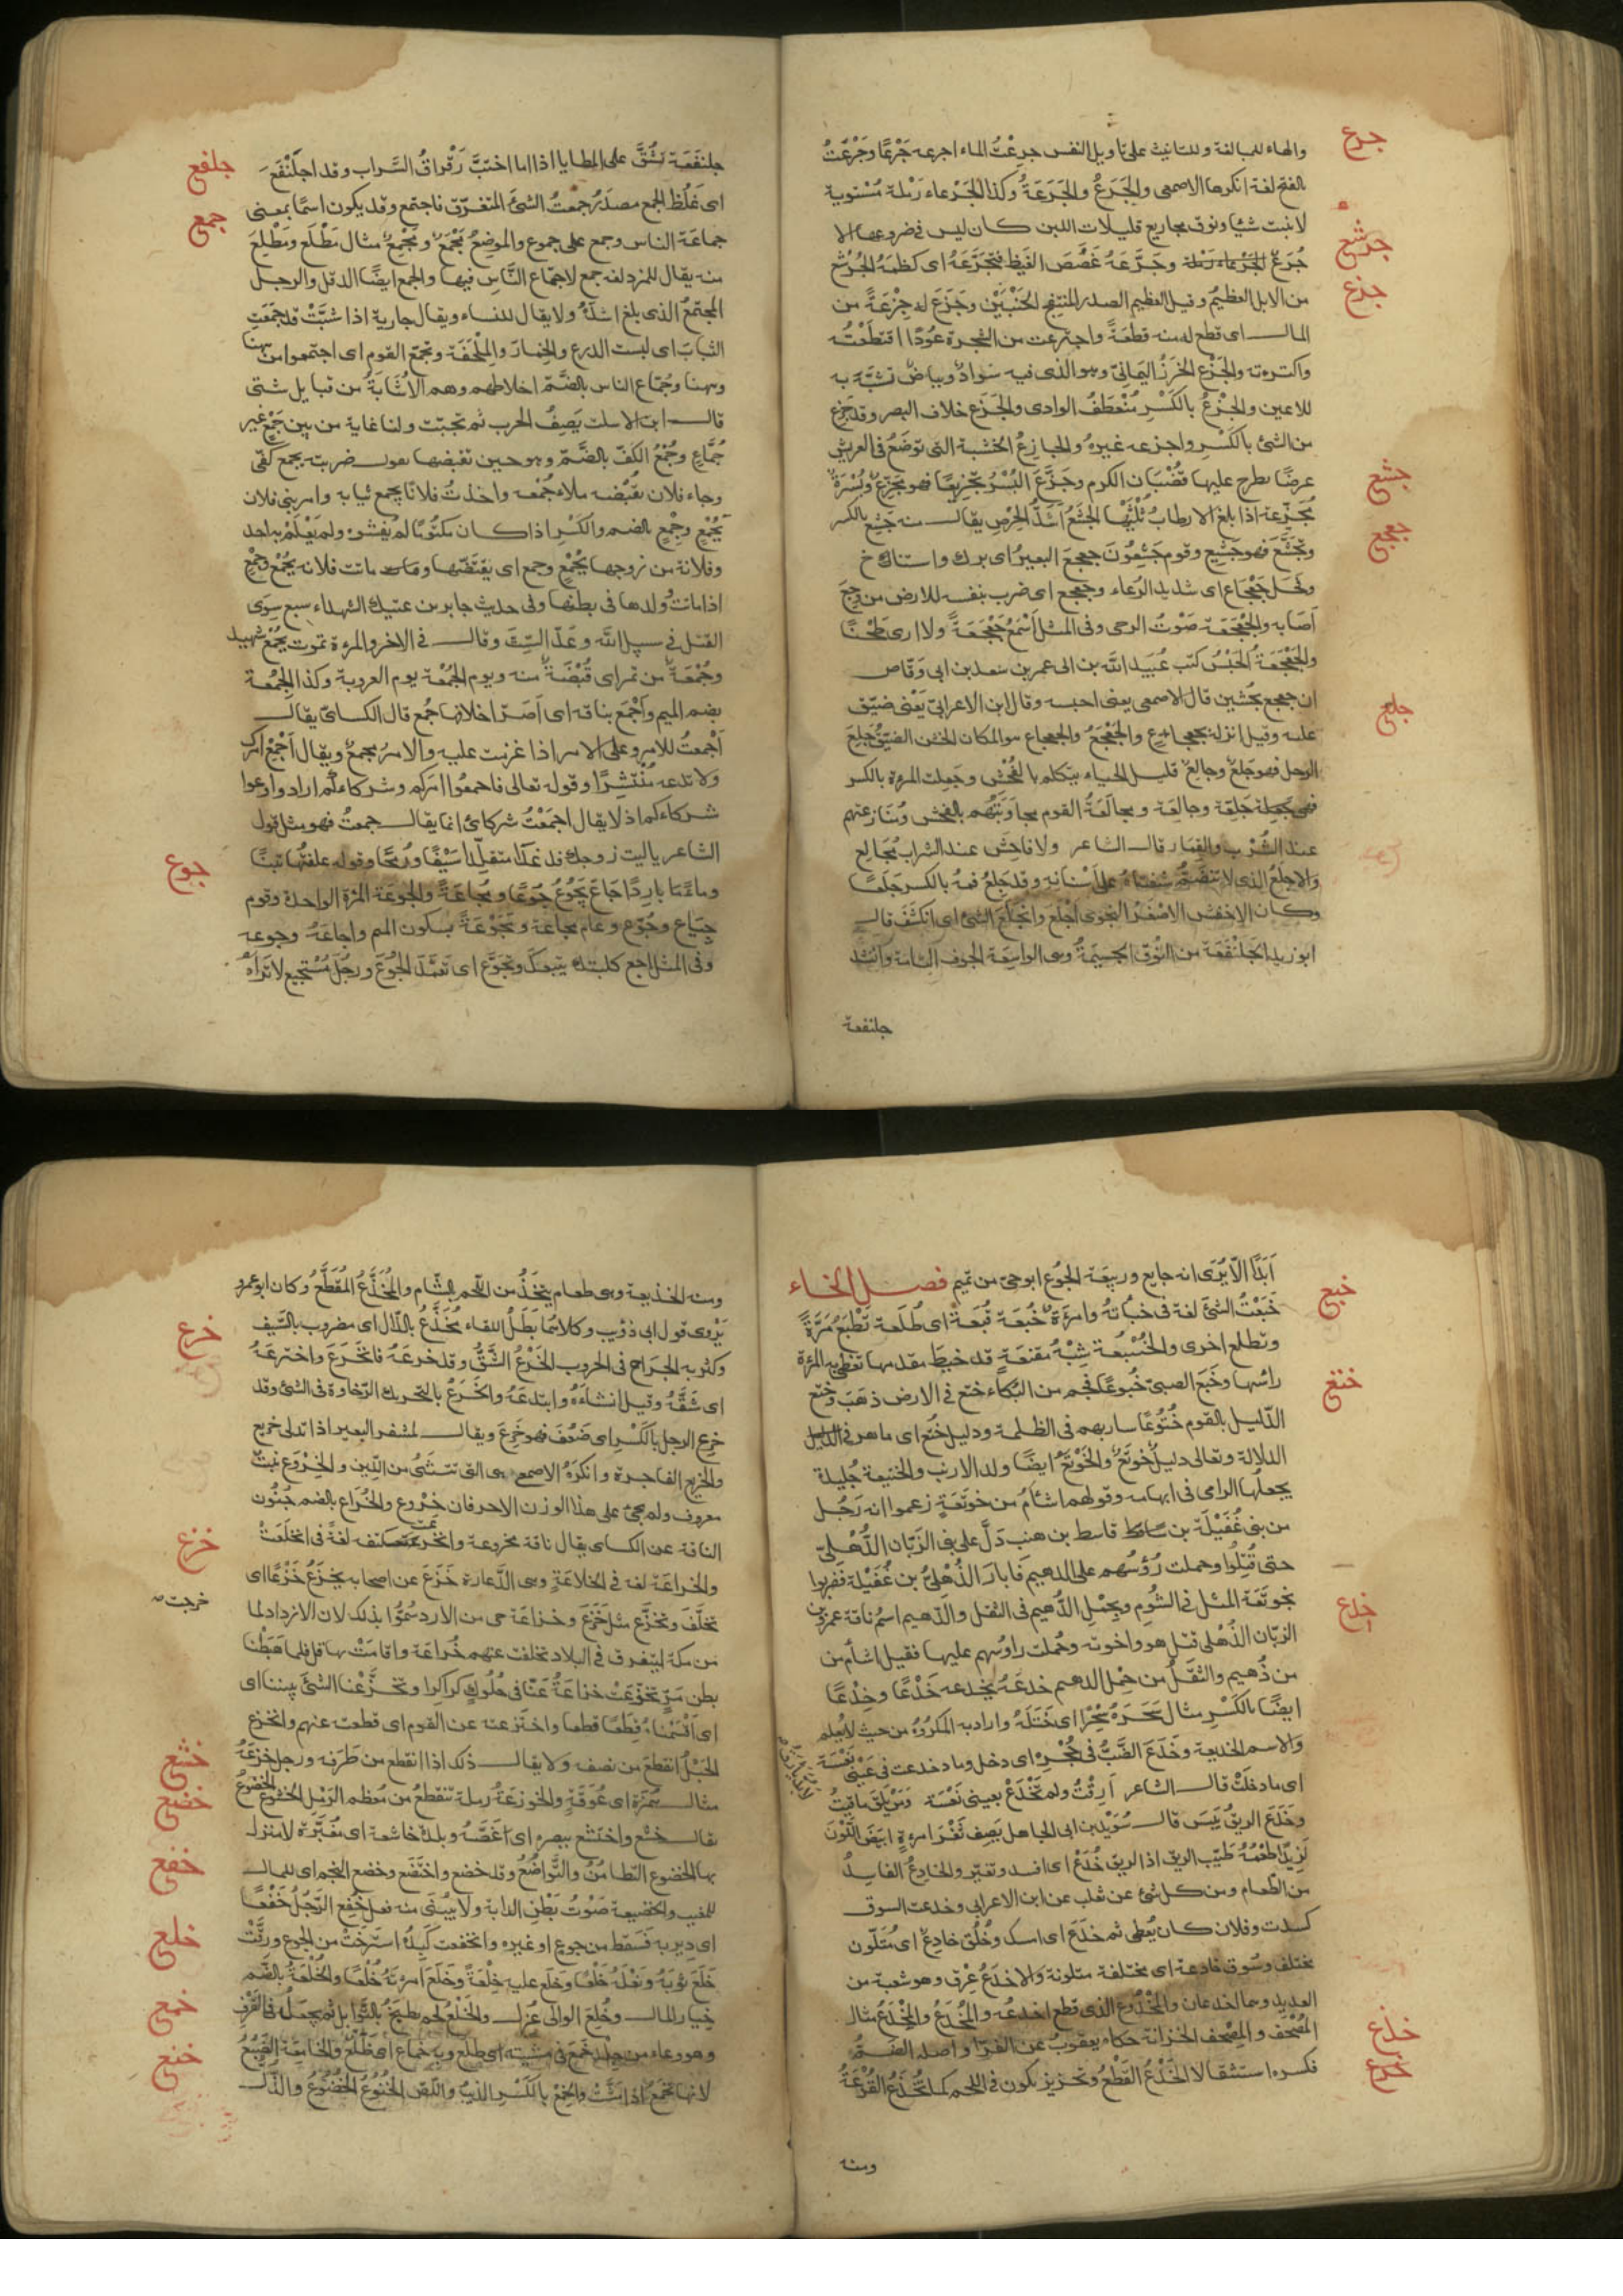 والهاء للمبالغة وللتانيث على تاويل النفس جرِعْتُ الماء اجرعه جَرْعًا وجَرَعْتُ
جرع
بالفتح لغة انكرها الاصمعى والجَرَعُ والجَرَعَةُ وكذا الجَرْعاء رَمْلة مُسْتوية
لا تنبت شيًا ونوق مجاريع قليلات اللبن كان ليس فى ضروعها الا
جرشع
جُرَعٌ وجَرَّعَهُ غُصَصَ الغَيظ فتجَرَّعَهُ اى كظمَهُ الجُرْشُع
من الابل العظيمُ وقيل العظيم الصدر المنتفخ الجَنْبَيْن وجَزَعَ له جِزْعَةً من
جزع
المال اى قطع له منه قطعَةً واجتزعت من الشجرة عُودًا اقتطَعْتُه
واكتسرته والجَزْع الخرَزُ اليَمانىّ وهو الذى فيه سَوادٌ وبياضٌ تشبَّه به
الاعين والجِزْعُ بالكَسْرِ مُنْعطَفُ الوادى والجَزَع خلاف الصبر وقد جَزِع
من الشئ بالكَسْرِ واجزعه غيرُهُ والجازِعُ الخشبة التى توضَعُ فى العريش
عرضًا يطرح عليها قُضْبَان الكرم وجَزَّعَ البُسْرُ تجْزيعًا فهو مجَزِّعٌ وبُسْرَةٌ
جشع
مُجَزِّعة اذا بلغ الارطابُ ثُلُثَيْها الجَشَعُ اشَدُّ الحِرْصِ يقال منه جَشِع بالكسر
وتجَشَّعَ فهو جَشِع وقوم جَشِعُونَ جعجعَ البعيرُ اى برك واستناخ
جعجع
وفَحْل جَعْجَاع اى شديد الرُغاء وجعجع اى ضرب بنفسه للارض من وجَعٍ
اَصَابه والجَعْجَعَة صَوْتُ الرحى وفى المثل اَسْمَعُ جَعْجَعَةً ولا ارى طِحْنًا
والجَعْجَعَةُ الحَبْسُ كتب عُبَيد الله بن الى عمر بن سعد بن ابى وَقّاص
ان جعجع بحُسَين قال الاصمعى يعنى احبسه وقال ابن الاعرابىّ يَعْنى ضيّق
عليه وقيل انزله بجعجاع والجَعْجَعُ والجعجاع هو المكان الخشن الضيّق جَلِعَ
جلع
الرجل فهو جَلِعٌ وجالِعٌ قليل الحياء يتكلم بالفُحْش وجَلِعت المرءة بالكسر
فهى جَلِعة وجالِعَة ومجالَعَةُ القوم مجاوَبَتُهُم بالفحش وتنازعهم
عند الشُرْبِ والقِمار قال الشاعر ولا فاحِش عند الشراب مُجَالِع
والاجلَعُ الذى لا تنضَمُّ شفتاهُ على اسنَانِهِ وقد جَلِعَ فمهُ بالكسر جَلَعًا
وكان الاخفش الاصْغَرُ النحوى اَجْلَعَ وانجَلَعَ الشئ اى انكشَفَ قال
ابو زيد الجَلَنْفَعَة من النُوق الجَسِيمَةُ وهى الواسِعَة الجوف التامة وانشد
جلنفعة
جلنفَعَة تَشُقُّ على المطايا اذا ما اختبَّ رَقْراقُ السَّراب وقد اجلَنْفَعَ
جلفع
اى غَلُظَ الجمع مصدَرُ جمعتُ الشئَ المتفرّق فاجتمع وقد يكون اسمًا بمعنى
جمع
جماعَة الناس وجمع على جموع والموضِعُ مَجْمَعٌ ومَجْمِعٌ مثال مَطْلَع ومَطْلِع
منه يقال للمزدلفه جمع لاجتماع النَّاسِ فيها والجمع ايضًا الدقل والرجل
المجتمِعُ الذى بلغ اشدَّهُ ولا يقال للنساء ويقال جارية اذا شبَّتْ قد جَمَعَتِ
الثيابَ اى لبست الدرع والخِمارَ والمِلْحَفَة وتجمّع القوم اى اجتمعوا من ههنا
وههنا وجُمّاع الناس بالضَّمّ اخلاطهم وهم الاُشَابَةُ من قبايل شتى
قال ابن الاسلت يَصِفُ الحرب ثم تجلّت ولنا غاية من بين جَمْعٍ غير
جُمَّاعِ وجُمْعُ الكَفّ بالضَّمّ وهو حين تقبضها يقول ضربته بجمع كفّى
وجاء فلان بقُبْضه ملاء جُمْعه واخذتُ فلانًا بجمع ثيابه وامر بنى فلان
بجُمْعٍ وجِمْعٍ بالضم والكَسْرِ اذا كان مكتُومًا لم يُفشوه ولم يَعْلَمْ به احد
وفلانة من زوجها بجُمْعٍ وجمع اى يقتضّها وماتت فلانه بجُمْعٍ وجِمْع
اذا ماتَتْ وولدها فى بطنها وفى حديث جابر بن عتيك الشهداء سبع سِوَى
القتل فى سبيل الله وعَدّ السِتَّة وقال فى الاخر والمرءة تموت بجُمْعٍ شهيد
وجُمْعَةٌ من تمر اى قُبْضَةٌ منه ويوم الجُمْعَة يوم العروبة وكذا الجُمُعَة
بضم الميم واَجْمَع بناقه اى اَصَرّ اخلافها جُمع قال الكسائىّ يقال
اَجْمعتُ للامر وعلى الامر اذا عزمت عليه والامرُ مجمعٌ ويقال اَجْمِعْ امرك
ولا تدعه مُنْتَشِرًا وقوله تعالى فاجمعُوا امركم وشركاءكم اراد وادعوا
شركاءكم اذ لا يقال اجمَعْتُ شركائ انما يقال جمعتُ فهو مثل قول
الشاعر يا ليت زوجك قد غدا متقلِّدًا سَيْفًا ورُمْحًا وقوله علفتُها تبنًا
وماءً باردًا جاعَ يَجُوعُ جُوعًا ومَجاعَةً والجَوعَة المرّة الواحدة وقوم
جوع
جِيَاع وجُوّع وعام مجاعَة ومَجْوَعَة بسكون الجيم واجاعَهُ وجوعه
وفى المثل اجِع كلبَك يتبعكَ وتجوَّع اى تعمَّدَ الجُوْعَ ورجُل مُسْتَجِيع لا تَراهُ
اَبدًا اِلّا يُرَى انه جايع وربيعَة الجُوْع ابو حىّ من تميم فصل الخاء
خَبَعْتُ الشئَ لغة فى خَباتهُ وامرَءةٌ خُبَعَة قُبَعَةٌ اى طُلَعة تَخْبَعُ مَرَّةً
خبع
وتطلع اخرى والخُنْبُعة شِبْهُ مِقنعَةٍ قد خيط مقدمها تغطى به المرءة
راسَها وخَبَعَ الصبىّ خُبُوعًا فحم من البُكاء ختع فى الارض ذهَبَ وختع
ختع
الدّليل بالقوم خُتُوعًا سار بهم فى الظلمة ودليل خُتَع اى ماهر فى
الدلالة وتعالى دليلٌ خَوْتَعٌ والخَوْتَعُ ايضًا ولد الارنب والختيعة جُليدة
يجعلُها الرامى فى ابهامه وقولهم اشأمُ من خوتَعَةٍ زعموا انه رَجُل
من بنى غُفَيْلَة بن قاسط بن هنب دَلَّ على بنى الزَبّان الذُّهْلىّ
حتى قُتِلُوا وحملت رُؤُسُهم على الدهيم فابارَ الذُهْلىُّ بن غُفَيْلة فضربوا
بخوتَعَة المثل فى الشُومِ وبحِمْل الدُّهيم فى الثقل والدّهيم اسمُ ناقة عمرو بن
الزبّان الذُهْلى قتل هو واخوته وحُملت راؤسهم عليها فقيل اشأم من
من دُهيم والثقَلُ من حِمْل الدهيم خدعَهُ يخدعه خَدْعًا وخِدْعًا
خدع
ايضًا بالكَسْرِ مثال سَحَرَهُ سِحْرًا اى خَتَلهُ واراد به المكرُوهَ من حيث لا يُعلم
والاسم الخديعة وخَدَعَ الضَّبُّ فى جُحْرِهِ اى دخل وما خدعت فى عَيْنى نَعْسَة
اى ما دخلَتْ قال الشاعر اَرِقْتُ ولم تَخْدَعْ بعينى نَعْسَة وَمَنْ يَلْقَ ما لاقيتُ
وخَدَعَ الريقُ يَبِسَ قال سُوَيْد بن ابى الجاهل يَصِف ثَغْرَ امرءةٍ ابيَضَ اللَّوْنَ
لَذِيذًا طعْمُهُ طيّب الريق اذا الريق خَدَعْ اى افسد وتغيّر والخادِعُ الفاسِدُ
من الطعام ومن كل شئ عن ثعلب عن ابن الاعرابى وخدعت السوق
كسدت وفلان كان يُعطى ثم خدَعَ اى امسك وخُلُق خادِعٌ اى مُتَلّون
مختلف وسُوق خادعة اى مختلفة متلونة والاخدَعُ عِرْق وهو شعبة من
الوريد وهما اخدعان والمَخْدُوع الذى قطع اخدعُه والمُخْدَعُ والمِخْدَعُ مثال
المُصْحَف والمِصْحف الخزانة حكاه يعقوبُ عن الفرّاء واصله الضَمُّ
خذع
فكسروه استثقالا الخَذْعُ القَطْعُ وتحزيز يكون فى اللحم كما تُخَذَّعُ القَرْعَةُ
ومنه
ومنه الخذيعة وهى طعام يتخَذُ من اللّحم بالشّام والمُخَذَّعُ المُقَطَّعُ وكان ابو عمرو
يَرْوى قول ابى ذؤيب وكلاهما بَطَلُ اللقاء مُخَذَّعُ بالذّال اى مضروب بالسَّيف
وكثر به الجراح فى الحروب الخَرْعُ الشَّقُّ وقد خرعَهُ فانخَرَعَ واخترعَهُ
خرع
اى شَقَّهُ وقيل انشأهُ وابتدعَهُ والخَرَعُ بالتحريك الرّخاوة فى الشئ وقد
خرِع الرجل بالكَسْرِ اى ضَعُفَ فهو خَرِعَ ويقال لمشفر البعير اذا تدلى خريع
والخريع الفاجرة وانكرَهُ الاصمعى هى التى تتثنّى من اللّين والخِرْوَع نبتٌ
معروف ولم يجئ على هذا الوزن الا حرفان خِرْوع والخُراع بالضم جنُون
الناقة عن الكساى يقال ناقة مخروعة وانخرعت كتفه لغةً فى انخلَعَتْ
والخراعَة لغة فى الخلاعَةِ وهى الدَّعارة خَزَعَ عن اصحابه يخزَعُ خَزْعًا اى
خزع
تخلَّفَ وتخزَّع مثل خَزَعَ وخزاعَة حى من الازد سُمُّوا بذلك لان الازد لما
خرجت صح
من مكة لتتفرق فى البلاد تخلفت عنهم خُزاعَة واقامَتْ بها قال فلما هَبَطْنا
بطن مَرّ تخزّعَتْ خزاعَةُ عَنّا فى حُلُولٍ كراكرا وتخزَّعْنا الشئَ بيننا اى
اى اقْتسَمْناهُ قِطَعًا قطعا واختزعته عن القوم اى قطعته عنهم وانخزع
الحَبْلُ انقطعَ من نصفه ولا يقال ذلك اذا انقطع من طَرَفه ورجل خُزَعَةُ
مثال هُمَزَة اى عُوَقَةٍ والخوزعَةُ رملة تنقطِعُ من مُعظم الرَّمْل الخشوع الخضُوعُ
خشع
يقال خشع واختشع ببصره اى غضَّهُ وبلدة خاشعة اى مغبَّرة لا منزل
بها الخضوع التطامُنُ والتَّواضُعُ وقد خضع واختَضَع وخضع النجم اى للمال
خضع
للمغيب والخضيعة صَوْتُ بَطْنِ الدابة ولا يُبْنَى منه فعل خُفِع الرَّجُلُ خَفْعًا
خفع
اى دِير به فسَقَط من جوع او غيره وانخفعت كَبِدُهُ استرخَتْ من الجوع ورقَّتْ
خَلَعَ ثوبَهُ ونَعْلَهُ خَلْعًا وخلَع عليه خِلْعَةً وخَلَعَ امرءتَهُ خُلْعًا والخُلْعَةُ بالضَّم
خلع
خِيار المال وخُلِعَ الوالى عُزِل والخَلْعُ لحم يطبَخُ بالتَّوابِل ثم يجعَلُ فى القَرْفِ
وهو وعاء من جِلد خَمَعَ فى مشيته اى ظلع وبه خُماع اى ظَلْعٌ والخامِعَة الضَّبُعُ
خمع
لانها تخمَعُ اذا مَشَتْ والخِمْعُ بالكَسْرِ الذيبُ واللّصّ الخُنُوعُ الخُضُوعُ والذّل
خنع